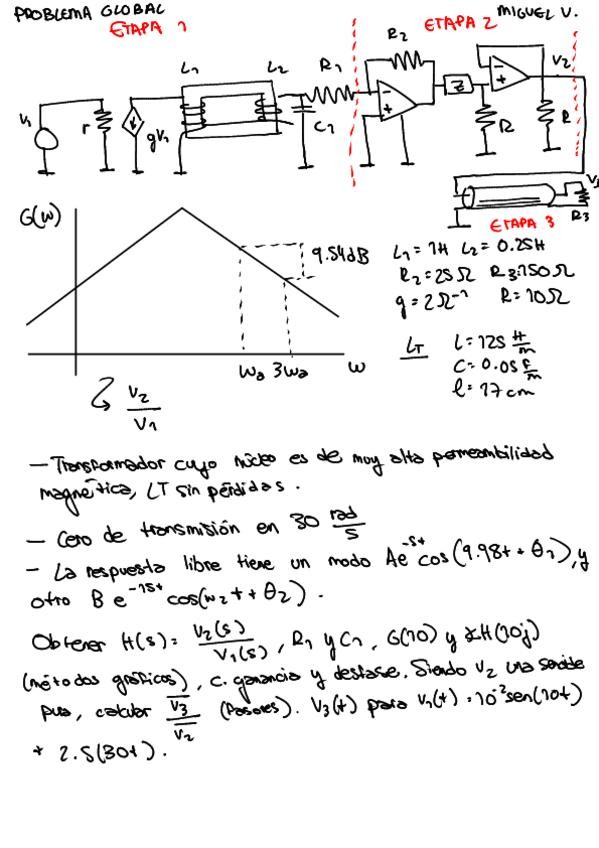 PROBLEMA GLOBAL
MIGUEL V.
ETAPA 1
ETAPA 2
L1
L2
R1
R2
V2
V1
r
gV1
C1
Z
R
R
V3
R3
ETAPA 3
G(w)
9.54dB
wa 3wa w
V2
V1
L1 = 1H L2 = 0.25H
R2 = 25Ω R3 = 150Ω
g = 2Ω⁻¹ R = 10Ω
LT L = 125 H/m
C = 0.05 F/m
l = 17cm
— Transformador cuyo núcleo es de muy alta permeambilidad
magnética, LT sin pérdidas.
— Cero de transmisión en 30 rad/s
- La respuesta libre tiene un modo Ae^-5t cos(9.98t + θ1), y
otro B e^-15t cos(w2t + θ2).
Obtener H(s) = V2(s)/V1(s), R1 y C1, G(10) y ∡H(10j)
(métodos gráficos), c. ganancia y desfase. Siendo V2 una senoide
pura, calcular V3/V2 (Fasores). V3(t) para V1(t) = 10⁻²sen(10t)
+ 2.5(30t).